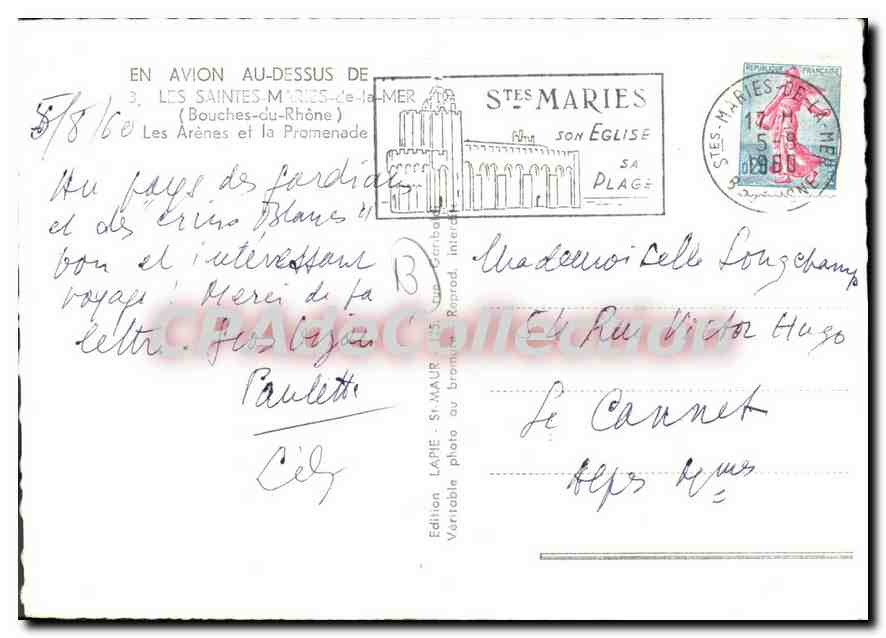 EN AVION AU-DESSUS DE ...
3. LES SAINTES-MARIES-de-la-MER
(Bouches-du-Rhône)
Les Arènes et la Promenade
5/8/60
Au pays des gardians
et des "Crins Blancs"
bon et intéressant
voyage ! Merci de ta
lettre. Gros bisous !
Paulette
B
STES MARIES
SON EGLISE
SA
PLAGE
REPUBLIQUE FRANÇAISE
STES-MARIES-DE-LA-MER
17 H
5-8
1960
0,20
Mademoiselle Longchamp
54 Rue Victor Hugo
Le Cannet
Alpes Mmes
Edition LAPIE - St-MAUR
Véritable photo au bromure Reprod. interdite
CPAdeCollection